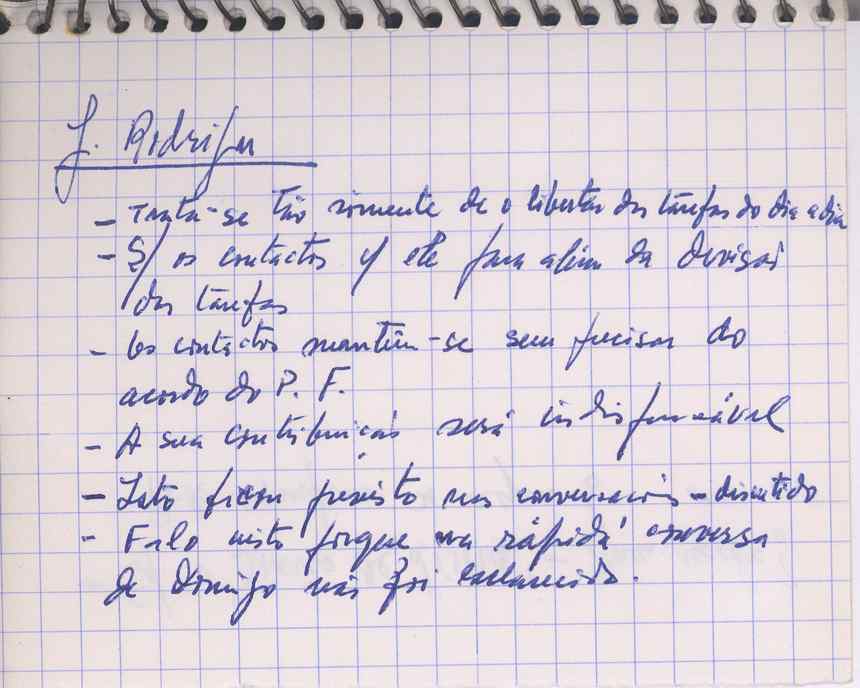 J. Rodrigues
- Trata-se tão somente de o libertar das tarefas do dia a dia
- os contactos c/ ele para além da divisão
das tarefas
- Os contactos mantêm-se sem precisar do
acordo do P. F.
- A sua contribuição será indispensável
- Isto ficou previsto nas conversações - discutido
- Falo nisto porque na rápida conversa
de Domingo não foi esclarecido.